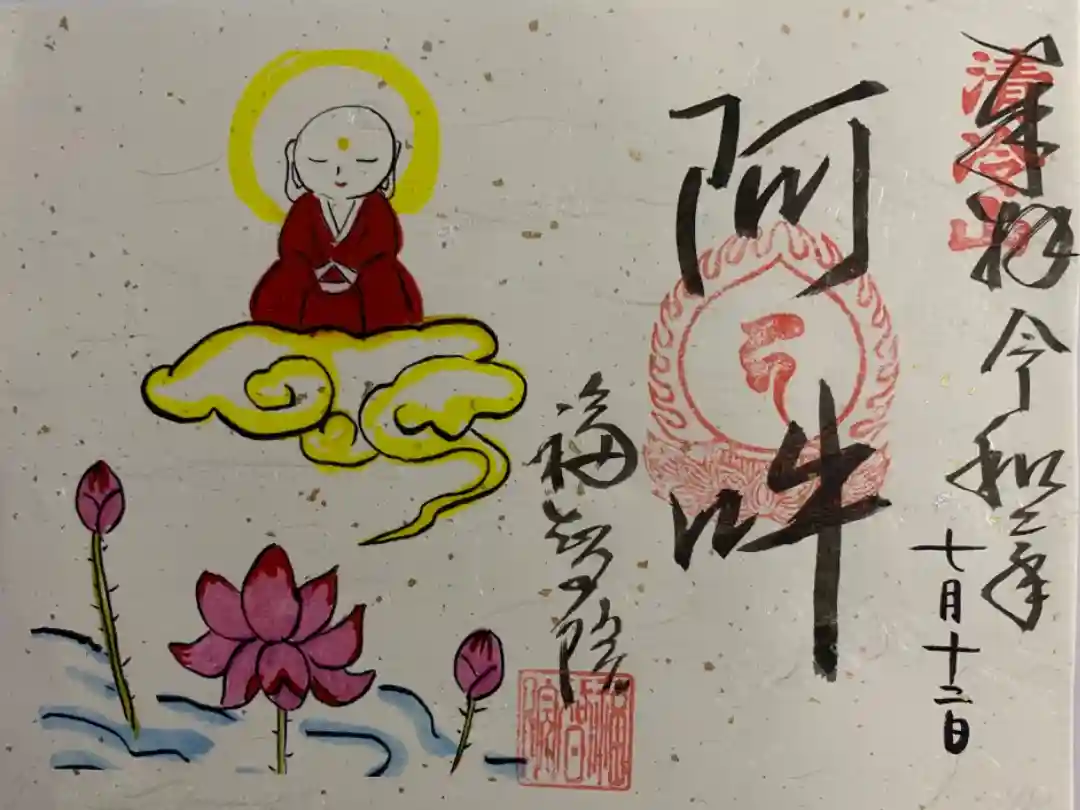 清冷山
奉拝 令和二年
七月十二日
阿吽
福智院
福智院